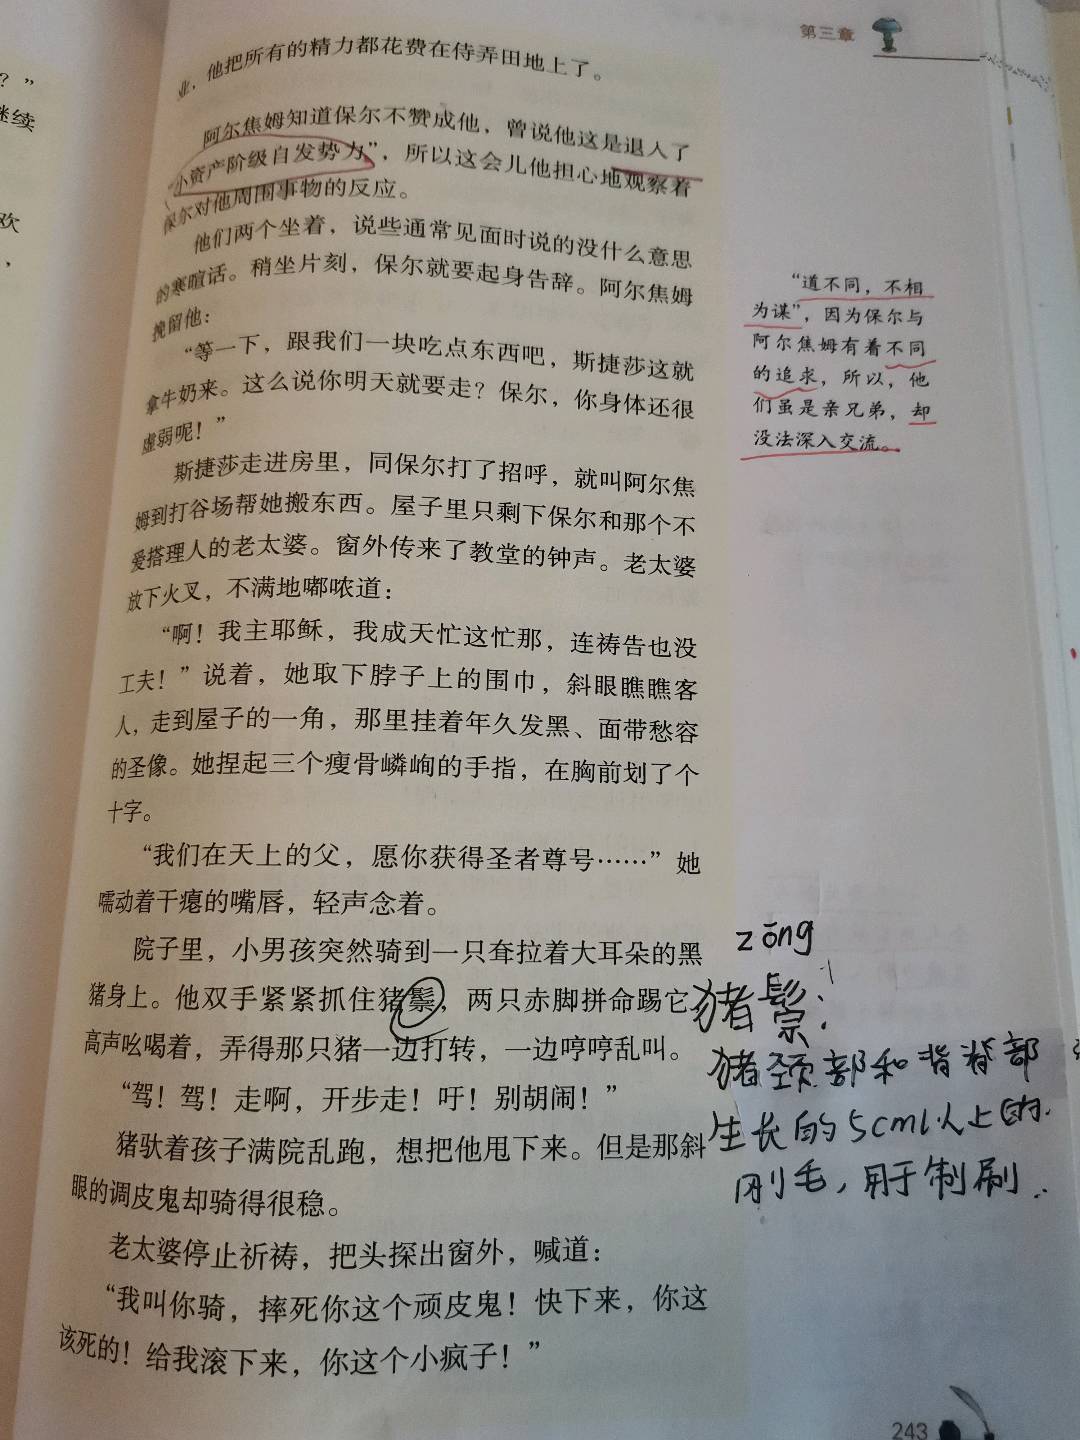 第三章
？”
继续
欢
，
业，他把所有的精力都花费在侍弄田地上了。
阿尔焦姆知道保尔不赞成他，曾说他这是退入了
“小资产阶级自发势力”，所以这会儿他担心地观察着
保尔对他周围事物的反应。
他们两个坐着，说些通常见面时说的没什么意思
的寒暄话。稍坐片刻，保尔就要起身告辞。阿尔焦姆
挽留他：
“等一下，跟我们一块吃点东西吧，斯捷莎这就
拿牛奶来。这么说你明天就要走？保尔，你身体还很
虚弱呢！”
斯捷莎走进房里，同保尔打了招呼，就叫阿尔焦
姆到打谷场帮她搬东西。屋子里只剩下保尔和那个不
爱搭理人的老太婆。窗外传来了教堂的钟声。老太婆
放下火叉，不满地嘟哝道：
“啊！我主耶稣，我成天忙这忙那，连祷告也没
工夫！”说着，她取下脖子上的围巾，斜眼瞧瞧客
人，走到屋子的一角，那里挂着年久发黑、面带愁容
的圣像。她捏起三个瘦骨嶙峋的手指，在胸前划了个
十字。
“我们在天上的父，愿你获得圣者尊号……”她
嚅动着干瘪的嘴唇，轻声念着。
院子里，小男孩突然骑到一只耷拉着大耳朵的黑
猪身上。他双手紧紧抓住猪鬃，两只赤脚拼命踢它，
高声吆喝着，弄得那只猪一边打转，一边哼哼乱叫。
“驾！驾！走啊，开步走！吁！别胡闹！”
猪驮着孩子满院乱跑，想把他甩下来。但是那斜
眼的调皮鬼却骑得很稳。
老太婆停止祈祷，把头探出窗外，喊道：
“我叫你骑，摔死你这个顽皮鬼！快下来，你这
该死的！给我滚下来，你这个小疯子！”
“道不同，不相
为谋”，因为保尔与
阿尔焦姆有着不同
的追求，所以，他
们虽是亲兄弟，却
没法深入交流。
zōng
猪鬃：
猪颈部和背脊部
生长的5cm以上的
刚毛，用于制刷．
243